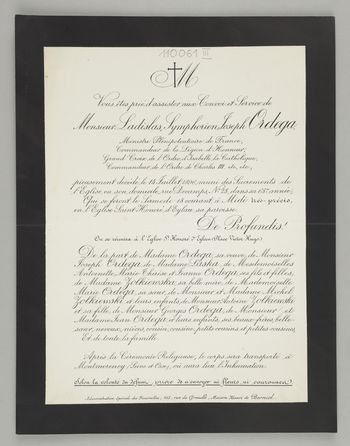 110061 III
M
Vous êtes prié d'assister aux Convoi et Service de
Monsieur Ladislas, Symphorien Joseph Ordega,
Ministre Plénipotentiaire de France,
Commandeur de la Légion d'Honneur,
Grand Croix de l'Ordre d'Isabelle la Catholique,
Commandeur de l'Ordre de Charles III etc, etc,
pieusement décédé le 14 Juillet muni des Sacrements de
l'Eglise en son domicile, rue dans sa année,
Qui se feront le Samedi 18 courant à Midi très-précis,
en l'Eglise Saint-Honoré d'Eylau sa paroisse.
De Profundis!
On se réunira à l'Eglise St Honoré d'Eylau (Place Victor Hugo)
De la part de Madame Ordega, sa veuve, de Monsieur
Joseph Ordega, de Madame Laska, de Mesdemoiselles
Antoinette Marie Thaïse et Jeanne Ordega, ses fils et filles,
de Madame Zolkiewska, sa belle mère, de Mademoiselle
Marie Ordega, sa sœur, de Monsieur et Madame Michel
Zolkiewski et leurs enfants, de Monsieur Antoine Zolkiewski
et sa fille, de Monsieur Georges Ordega, de Monsieur et
Madame Jean Ordega et leurs enfants, ses beaux-frères, belle-
sœur, neveux, nièces, cousin, cousine, petits cousins et petites cousines,
Et de toute la famille.
Après la Cérémonie Religieuse, le corps sera transporté à
Montmorency (Seine et Oise), où aura lieu l'Inhumation.
Selon la volonté du défunt, prière de n'envoyer ni fleurs, ni couronnes.
Administration spéciale des Funérailles, rue de Grenelle, Maison Henri de Borniol.